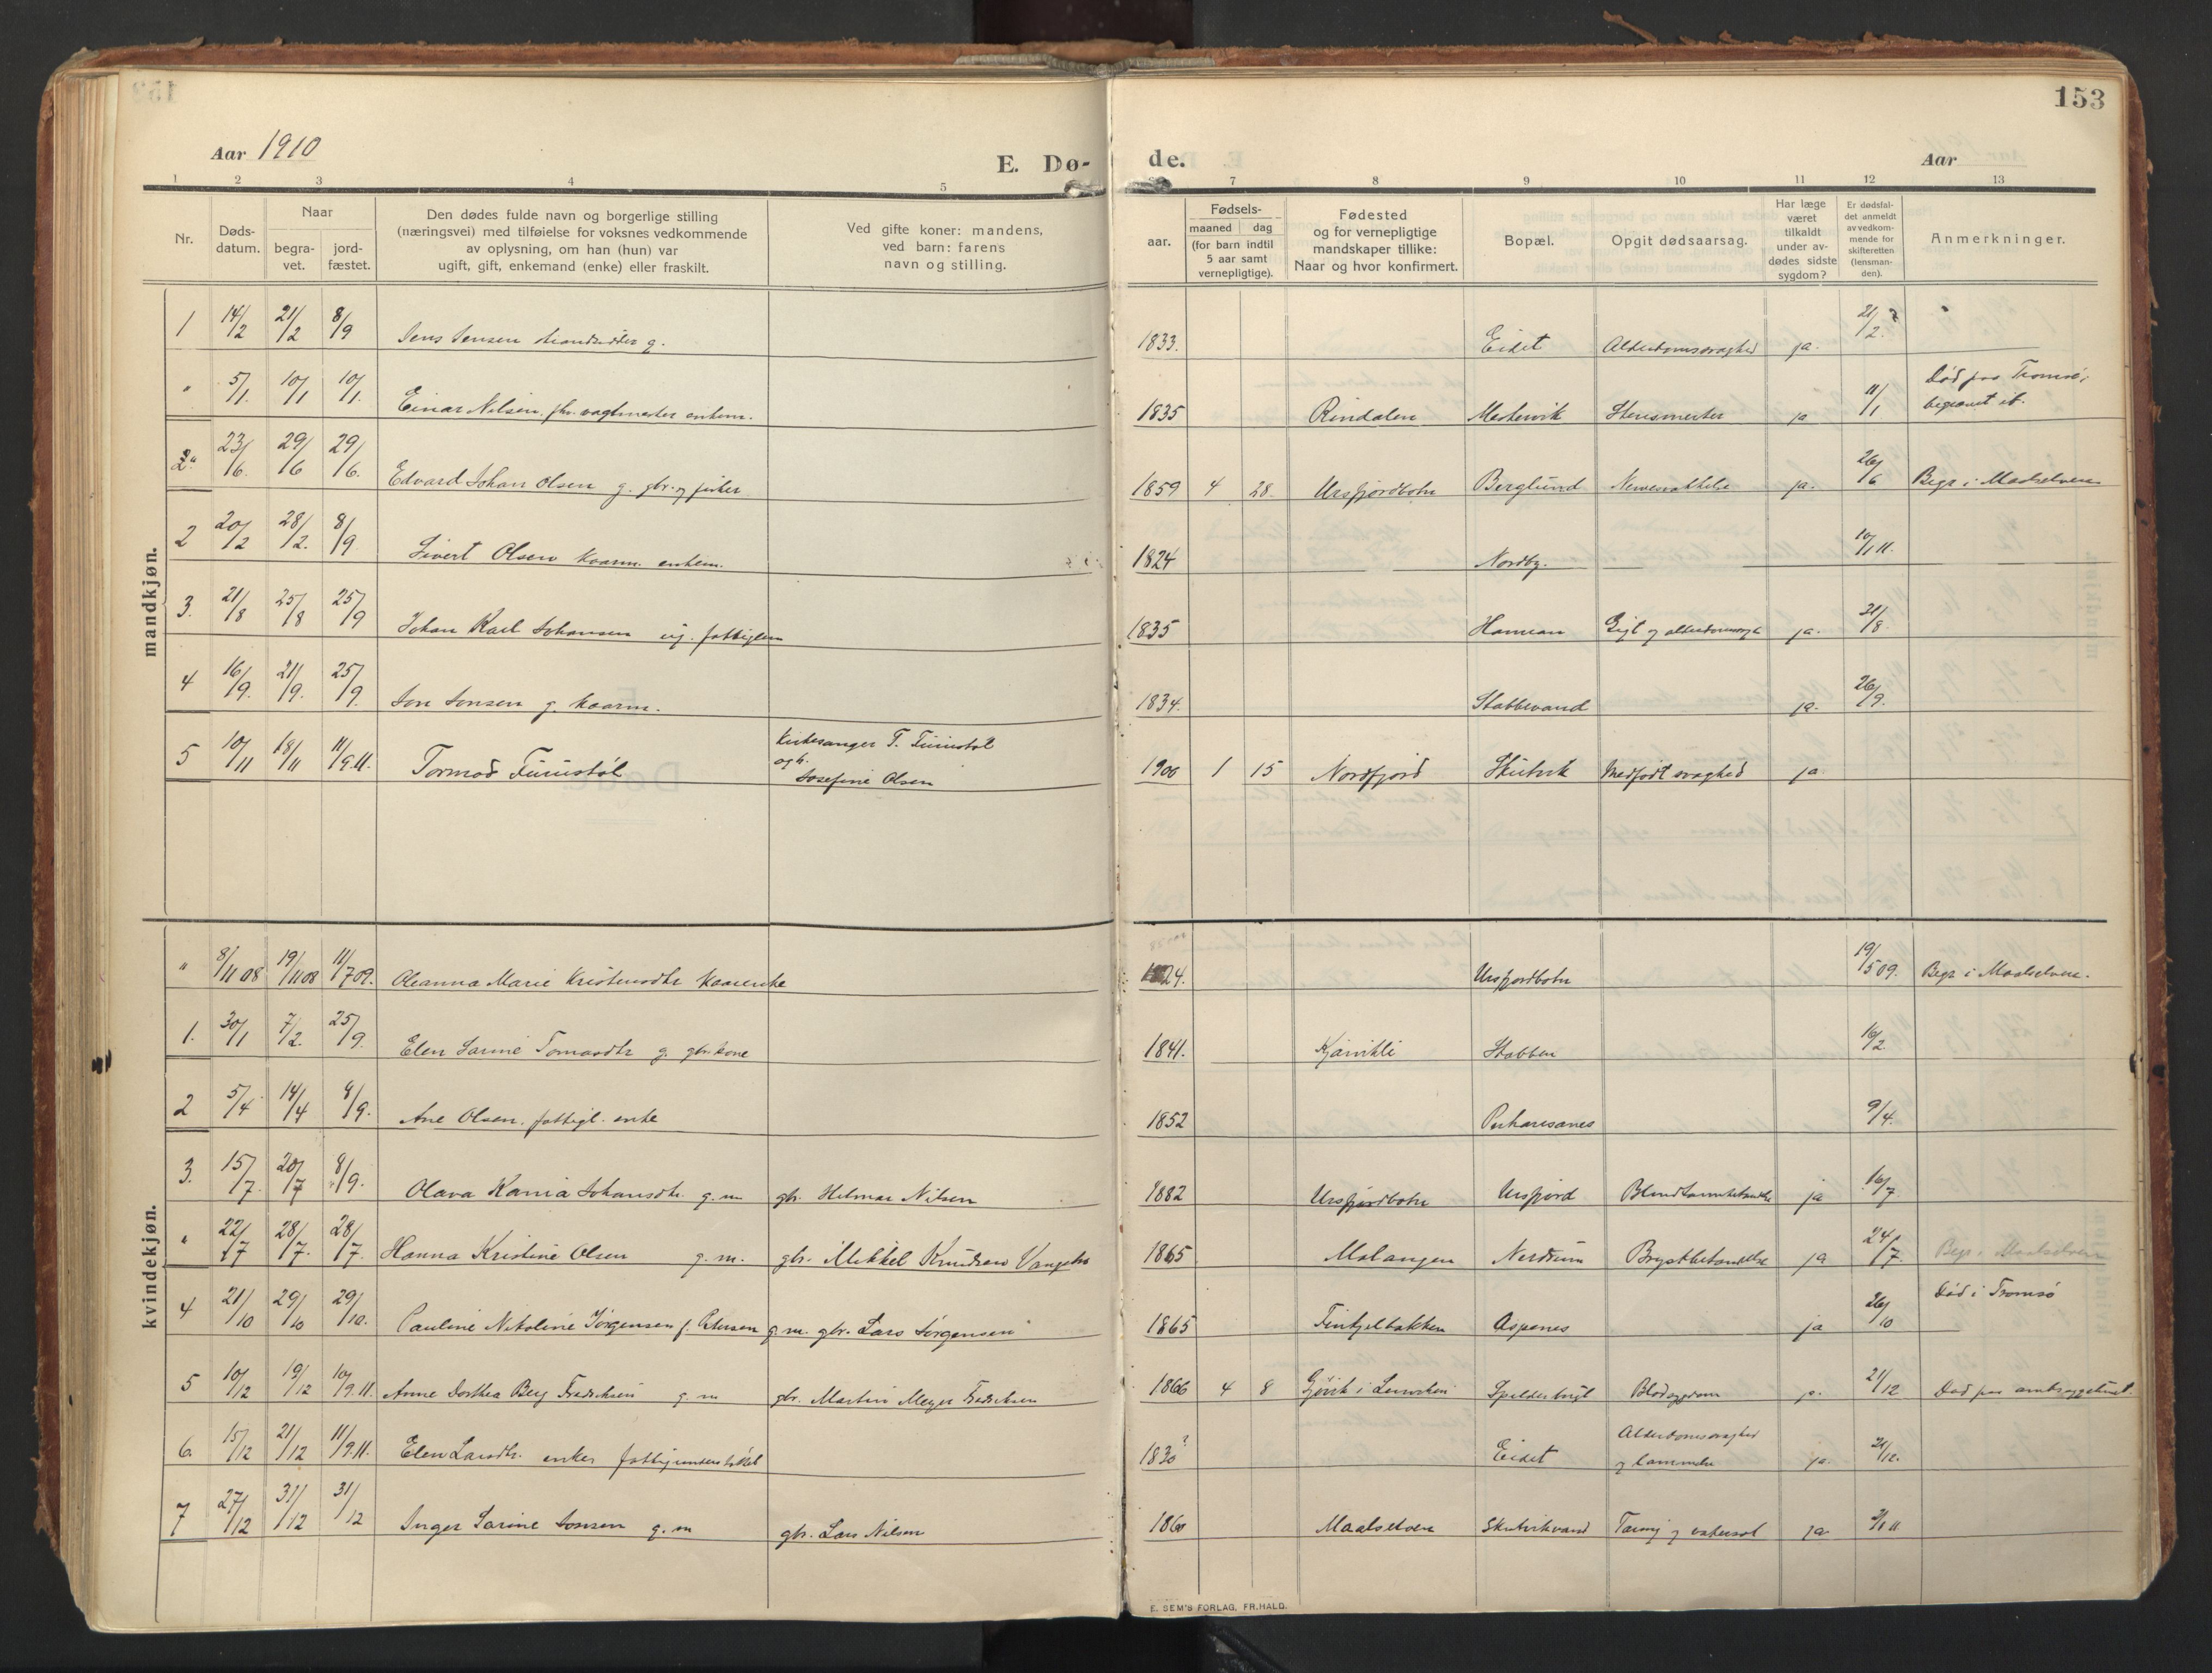 153
Aar 1910
E. Dø-
de.
Aar
1 2 3 4 5 7 8 9 10 11 12 13
Nr.
Døds-
datum.
Naar
begra-
vet.
jord-
fæstet.
Den dødes fulde navn og borgerlige stilling
(næringsvei) med tilføielse for voksnes vedkommende
av oplysning, om han (hun) var
ugift, gift, enkemand (enke) eller fraskilt.
Ved gifte koner: mandens,
ved barn: farens
navn og stilling.
aar.
Fødsels-
maaned dag
(for barn indtil
5 aar samt
vernepligtige).
Fødested
og for vernepligtige
mandskaper tillike:
Naar og hvor konfirmert.
Bopæl.
Opgit dødsaarsag.
Har læge
været
tilkaldt
under av-
dødes sidste
sygdom?
Er dødsfal-
det anmeldt
av vedkom-
mende for
skifteretten
(lensman-
den).
Anmerkninger.
mandkjøn.
1 14/2 21/2 8/9 Jens Jensen g. 1833. Eidet Alderdomssvaghed ja. 21/2
" 5/1. 10/1 10/1. Einar Nilsen, fhv. vagtmester enkem. 1835 Rindalen Mestervik ja 11/1 Død paa Tromsø,
begravet
2" 23/6. 29/6 29/6. Edvard Johan Olsen g. gbr. og fisker 1859 4 28. Ursfjordbotn Berglund ja. 26/6 Begr. i Maalselven
2 20/2 28/2. 8/9 Sivert Olsen kaarm. enkem. 1824 Nordby. 10/1 11.
3. 21/8 25/8 25/9 Johan Karl Johansen ug. fattiglem 1835 Hamran Gigt og ja. 21/8
4 16/9. 21/9. 25/9. Jon Jonsen g. kaarm. 1834. Stabbevand ja. 26/9.
5 10/11 18/11 11/9.11. Tormod Furustøl Kirkesanger T. Furustøl
og h. Josefine Olsen 1900 1 15 Nordfjord Skutvik Medfødt svaghed ja
kvindekjøn.
" 8/11 08 19/11 08 11/7 09. Oleanna Marie Kristensdtr kaarenke 24. Ursfjordbotn 19/5 09. Begr i Maalselven.
1. 30/1 7/2. 25/9. Elen Sarine Tomasdtr g. gbr. kone 1841. Kjarvikli Stabben 16/2.
2 5/4 14/4 8/9. Ane Olsen. fattigl. enke 1852 9/4.
3. 15/7. 20/7 8/9. Olava Kania Johansdtr. g. m gbr. Helmar Nilsen 1882 Ursfjordbotn Ursfjord Blindtarmbetændelse ja 16/7
" 22/7 28/7. 28/7. Hanna Kristine Olsen g. m. gbr. Mikkel Knudsen 1865 Malangen Nordrum Brystbetændelse ja 24/7. Begr. i Maalselven
4 21/10 29/10 29/10. Pauline Nikoline Jørgensen f. Petersen g. m. gbr. Lars Jørgensen 1865 Finfjelbakken Aspenes ja 26/10 Død i Tromsø
5 10/12 19/12 10/9.11. Anne Dorthea Berg Fredriksen g. m gbr. Martin Meyer Fredriksen 1866 4 8 Gjøvik i Lenviken Spildrebugt Blodsygdom ja. 21/12. Død paa amtssygehuset.
6. 15/12 21/12 11/9.11. Elen Larsdtr. enke fattigunderstøttet 1830? Eidet Alderdomssvaghed
og lammelse ja. 21/12.
7 27/12 31/12 31/12 Inger Sarine Jonsen g. m gbr. Lars Nilsen Maalselven Skutvikvand ja
E. SEM'S FORLAG, FR.HALD.